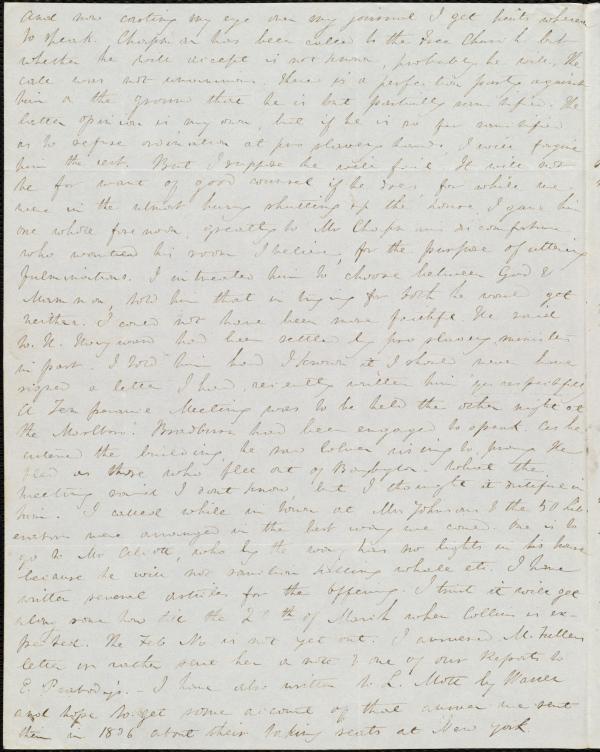 And now casting my eye over my journal I get hints whereon
to speak. Chapman has been called to the Free Church but
whether he will accept is not known, probably he will. The
call was not unanimous. There is a perfection party against
him on the ground that he is but partially sanctified. The
better opinion is my own, but if he is so far sanctified
as to refuse ordination at pro slavery hands, I will forgive
him the rest. But I suppose he will fail. It will not
be for want of good counsel if he does, for while we
were in the utmost hurry shutting up the house, I gave him
one whole forenoon, greatly to Mr Chapman's discomfiture
who wanted his room I believe, for the purpose of uttering
fulminations. I intreated him to choose between God &
Mammon, told him that in trying for both he would get
neither. I could not have been more faithful. He said
had been settled by pro slavery ministers
in part. I told him had I known it I should never have
signed a letter I had recently written him "yrs respectfully"
A Temperance Meeting was to be held the other night at
the Marlboro'. Bradburn had been engaged to speak. As he
entered the building, he saw Colver rising to pray. He
fled as those who flee out of Babylon. What the
meeting said I dont know but I thought it in
him. I called while in town at Mrs Johnson's & the 50
were arranged in the best way we could. One is to
go to Mr Alcott, who by the way, has no lights in his house
because he will not sanction killing whales etc. I have
written several articles for the offering. I trust it will get
along some how till the 20th of March when Collins is ex-
pected. The Feb No is not yet out. I answered M. Fullers
letter or rather sent her a note & one of our Reports to
E. Peabody's. - I have also written to L. Mott by
and hope to get some account of that answer we sent
them in 1836 about their taking seats at New York.